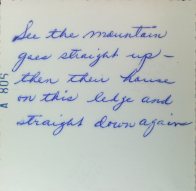 See the mountain
goes straight up –
then their house
on this ledge and
straight down again
A 805